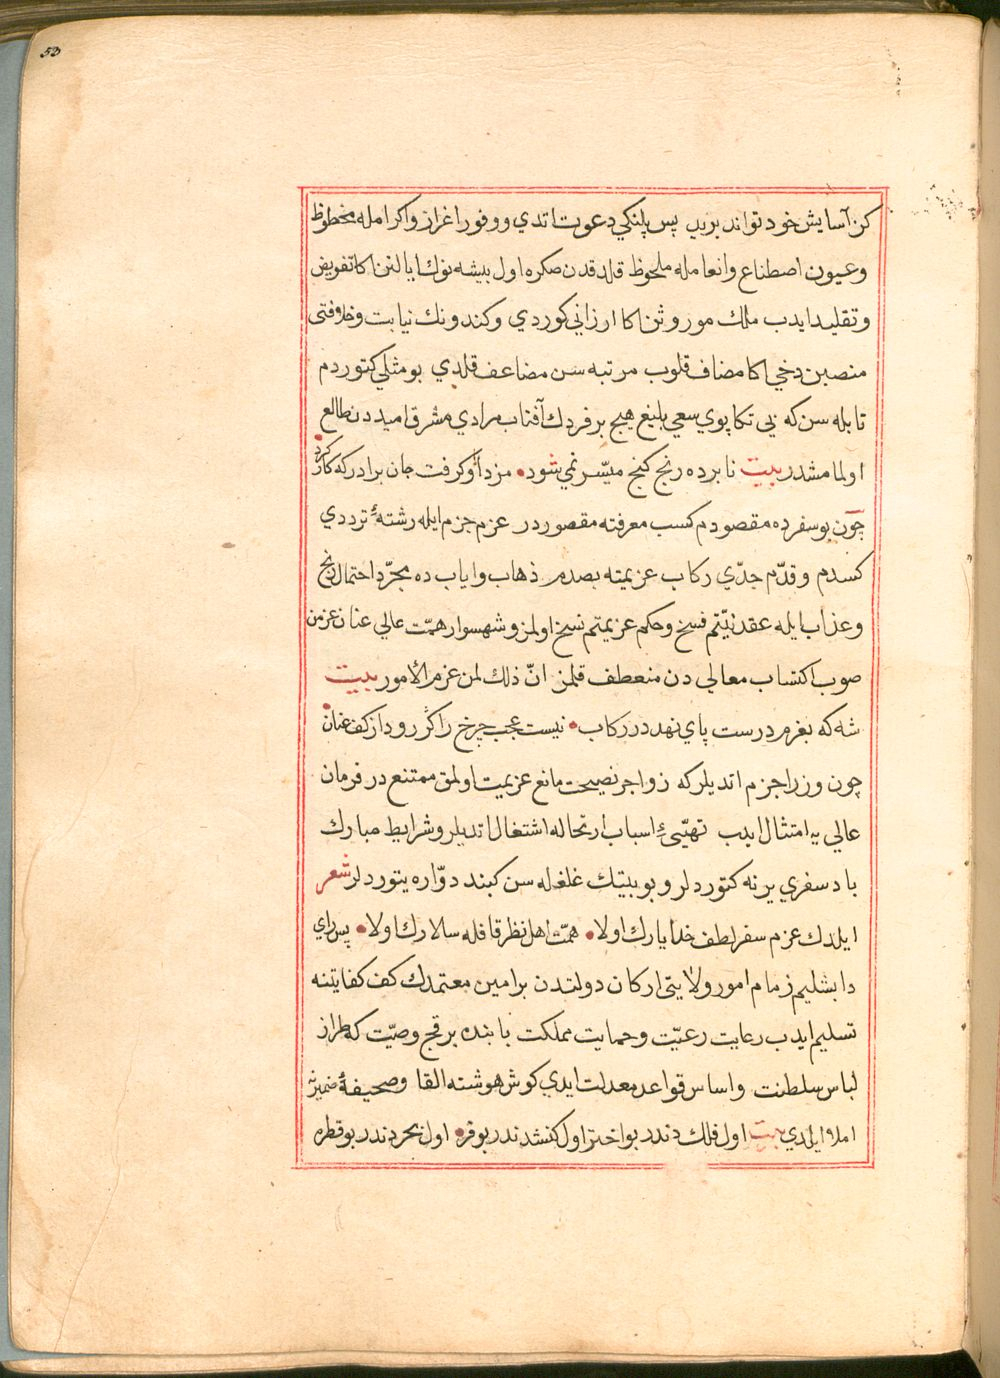 53
كن آسايش خود تواند بريد پس پلنكي دعوت اتدي ووفور اغراز واكرامله محظوظ
وعيون اصطناع وانعامله ملحوظ قلدقدن صكره اول بيشه نوك ايالتن اكا تفويض
وتقليد ايدب ملك موروثن اكا ارزاني كوردي وكندونك نيابت وخلافتى
منصبن دخي اكا مضاف قلوب مرتبه سن مضاعف قلدي بو مثلي كتوردم
تا بله سن كه بي تكاپوي سعي بليغ هيج بر فردك آفتاب مرادي مشرق اميددن طالع
اولمامشدر بيت نابرده رنج كنج ميسّر نمي شود مزد آن كرفت جان برادر كه كار كرد
چون بو سفرده مقصودم كسب معرفته مقصوردر عزم جزم ايله رشتهٔ ترددي
كسدم وقدّم جدّي ركاب عزيمته بصدم ذهاب واياب ده مجرّد احتمال رنج
وعذاب ايله عقد نيّتم فسخ وحكم عزيمتم نسخ اولمز وشهسوار همّت عالي عنان عزمن
صوب اكتساب معالي دن منعطف قلمز انّ ذلك لمن عزم الأمور بيت
شه كه بعزم درست پاي نهد در ركاب نيست عجب چرخ را كر رود از كف عنان
چون وزرا جزم اتديلر كه زواجر نصيحت مانع عزيمت اولمق ممتنع در فرمان
عالي يه امتثال ايدب تهيّىء اسباب ارتحاله اشتغال اتديلر وشرايط مبارك
باد سفري يرنه كتوردلر وبو بيتك غلغله سن كبند دوّاره يتوردلر شعر
ايلدك عزم سفر لطف خدا يارك اولا همّت اهل نظر قافله سالارك اولا پس راي
دابشليم زمام امور ولايتى اركان دولتدن بر امين معتمدك كف كفايتنه
تسليم ايدب رعايت رعيّت وحمايت مملكت بابنده بر قچ وصيّت كه طراز
لباس سلطنت واساس قواعد معدلت ايدي كوش هوشته القا وصحيفهٔ ضميرنه
املا ايلدي بيت اول فلك دندر بو اختر اول كنشدندر بو فر اول بحردندر بو قطره